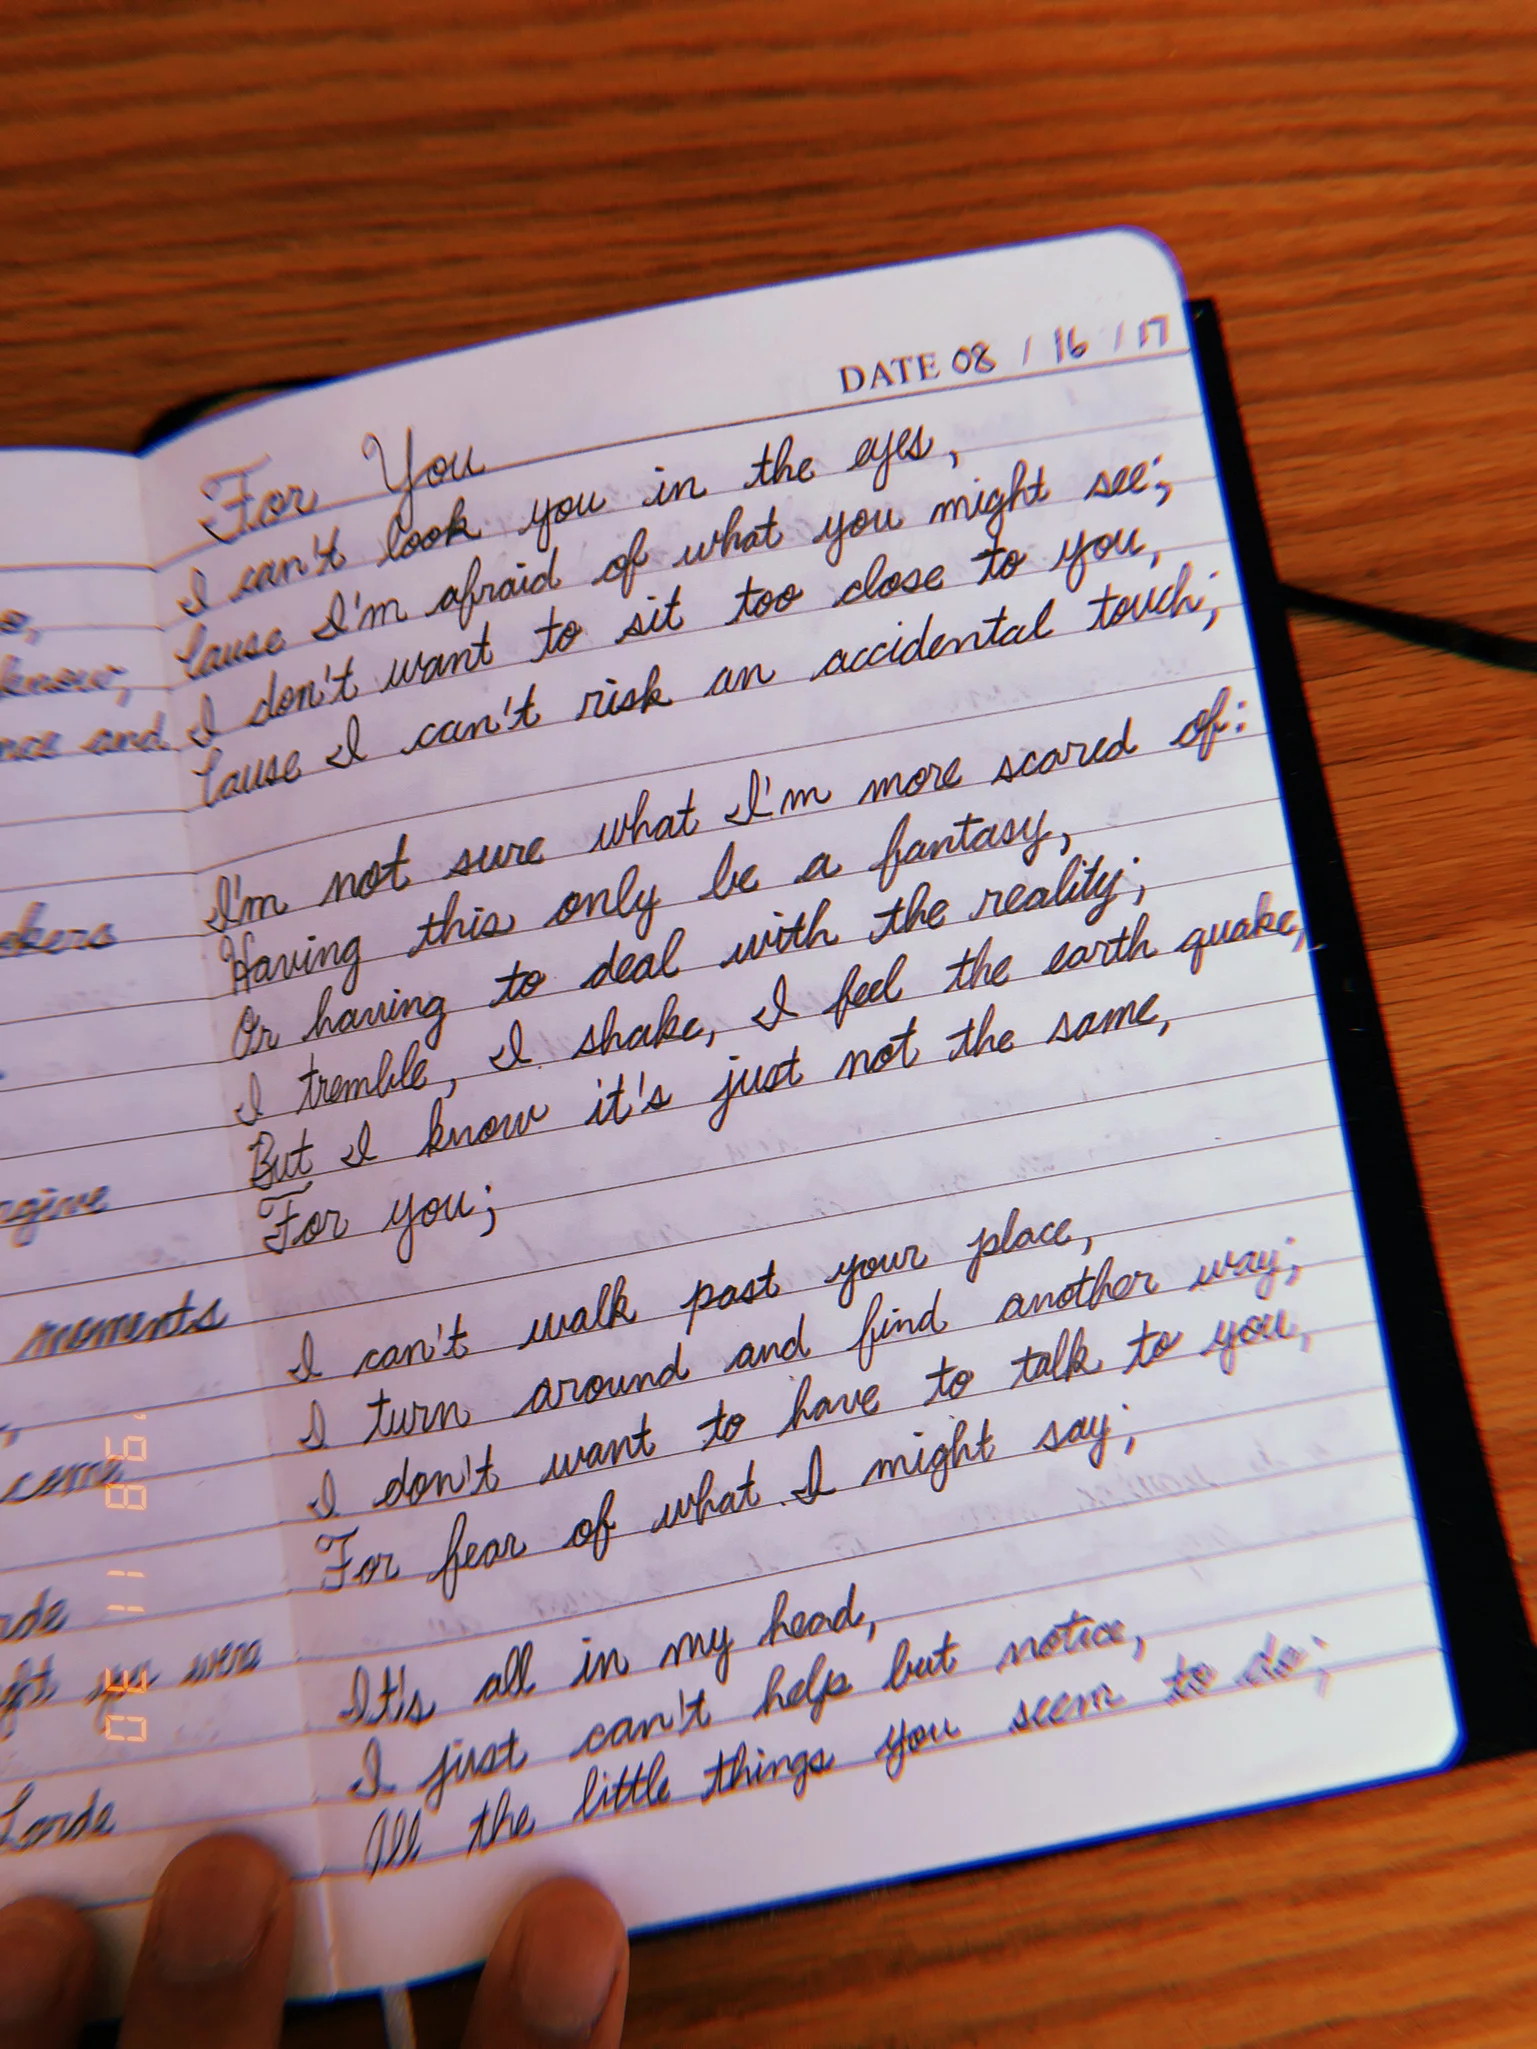 o,
know,
and
okers
moments
come
you were
Lorde
DATE 08 / 16 / 17
For You
I can't look you in the eyes,
Cause I'm afraid of what you might see;
I don't want to sit too close to you,
Cause I can't risk an accidental touch;
I'm not sure what I'm more scared of:
Having this only be a fantasy,
Or having to deal with the reality;
I tremble, I shake, I feel the earth quake,
But I know it's just not the same,
For you;
I can't walk past your place,
I turn around and find another way;
I don't want to have to talk to you,
For fear of what I might say;
It's all in my head,
I just can't help but notice,
All the little things you seem to do;
30 11 '98